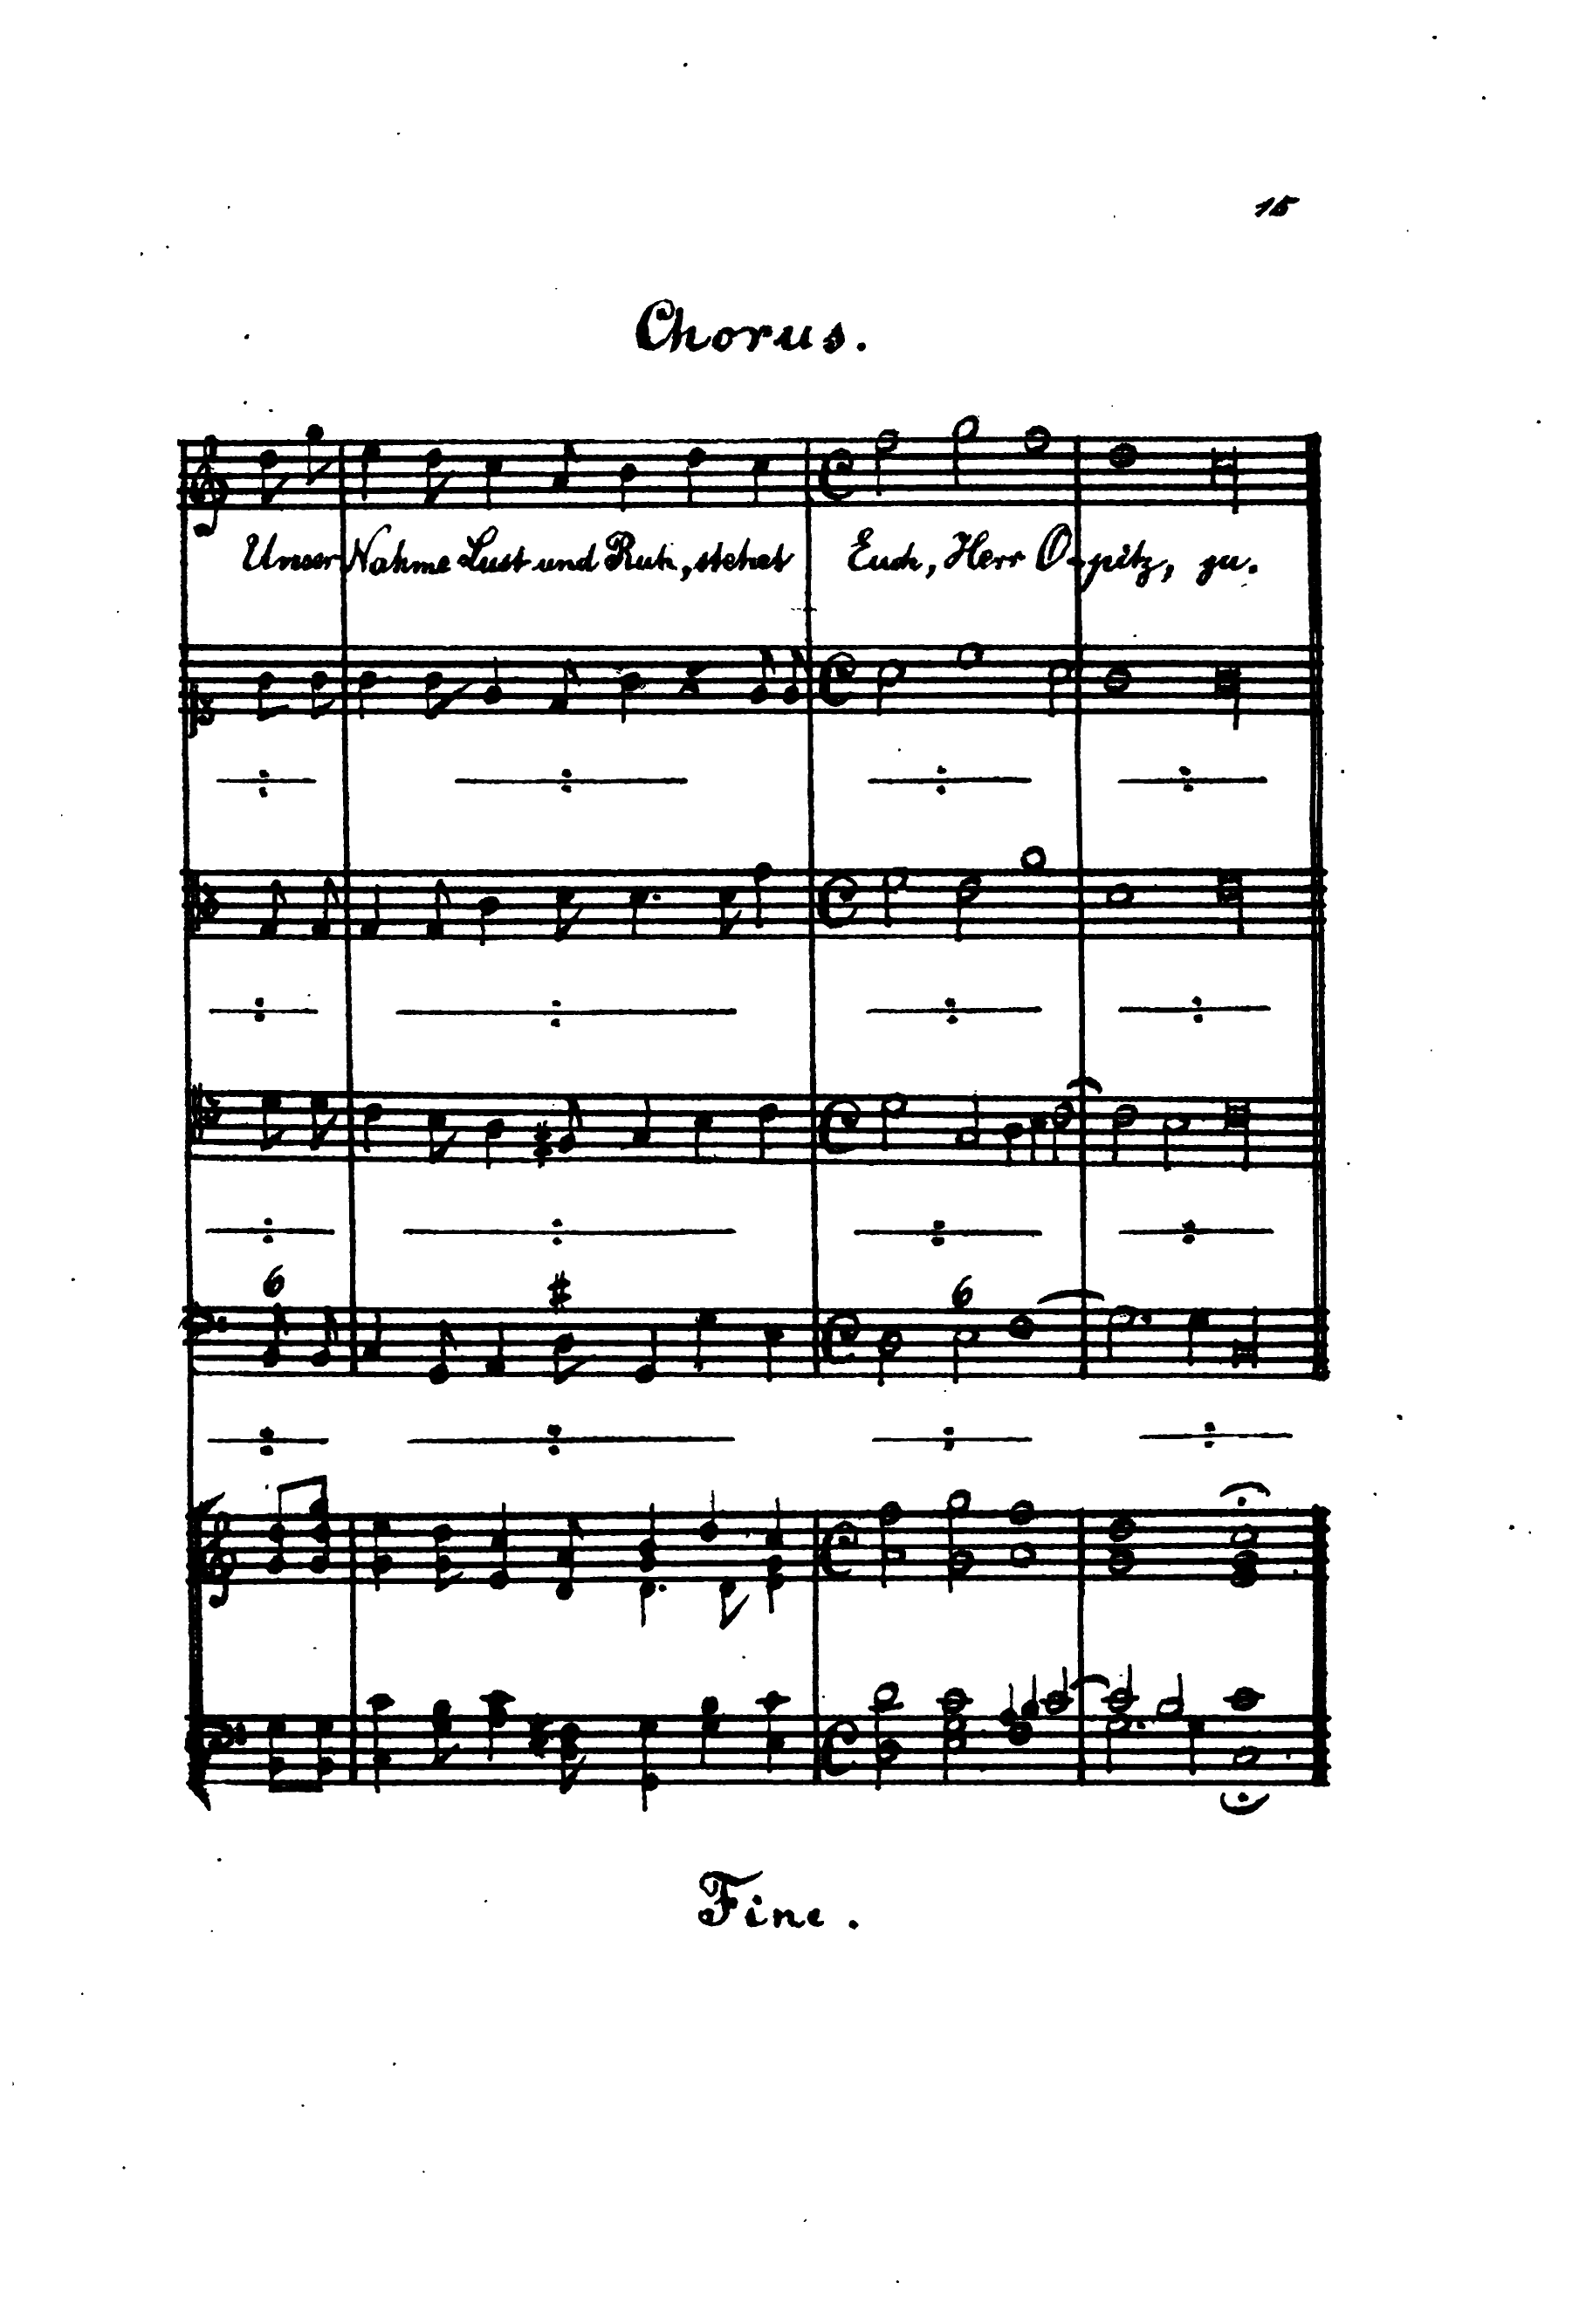 15
Chorus.
Unser Nahme Lust und Ruh, stehet Euch, Herr O-pitz, zu.
6 # 6
Fine.